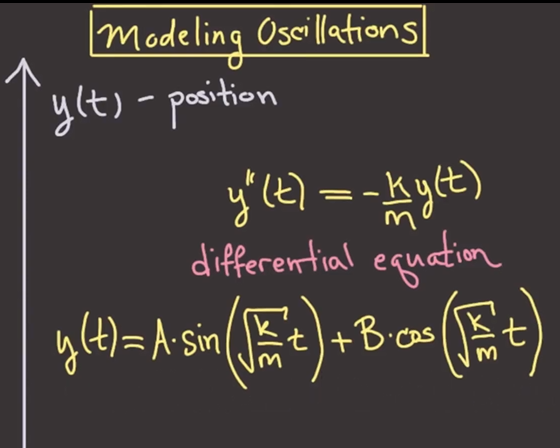 Modeling Oscillations
y(t) - position
y"(t) = -k/m y(t)
differential equation
y(t) = A·sin(√(k/m) t) + B·cos(√(k/m) t)